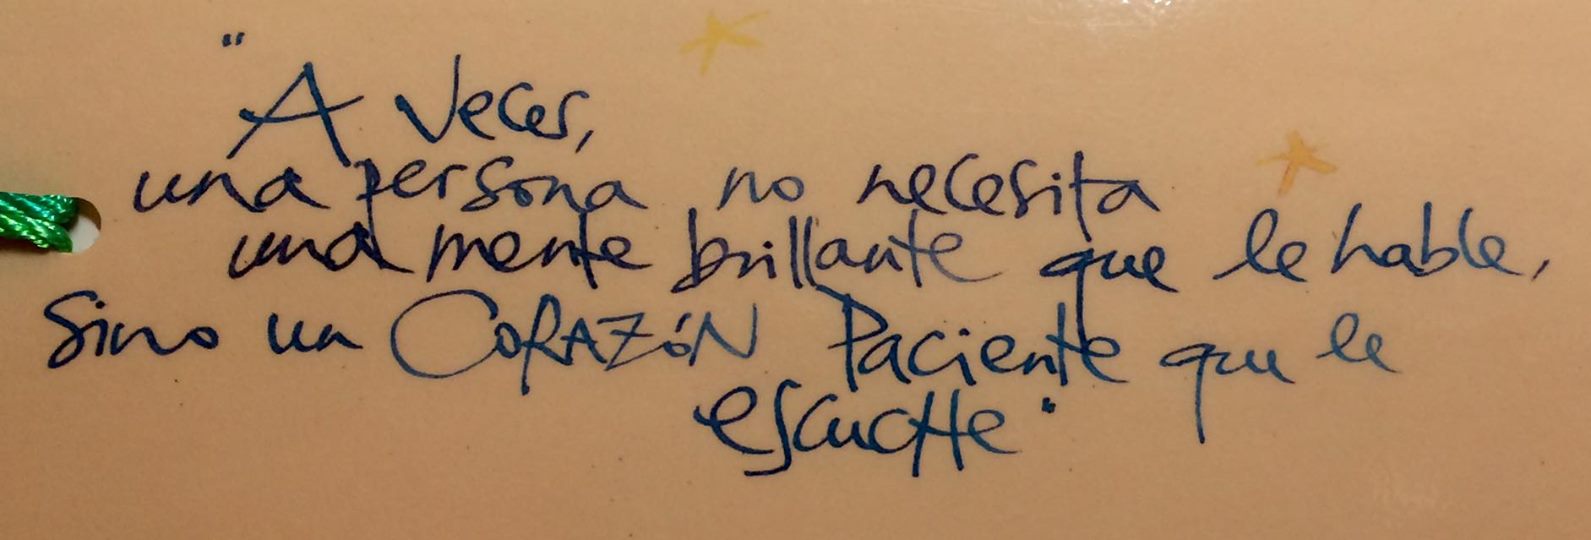 "A veces,
una persona no necesita
una mente brillante que le hable,
Sino un CORAZÓN Paciente que le
escucHe"